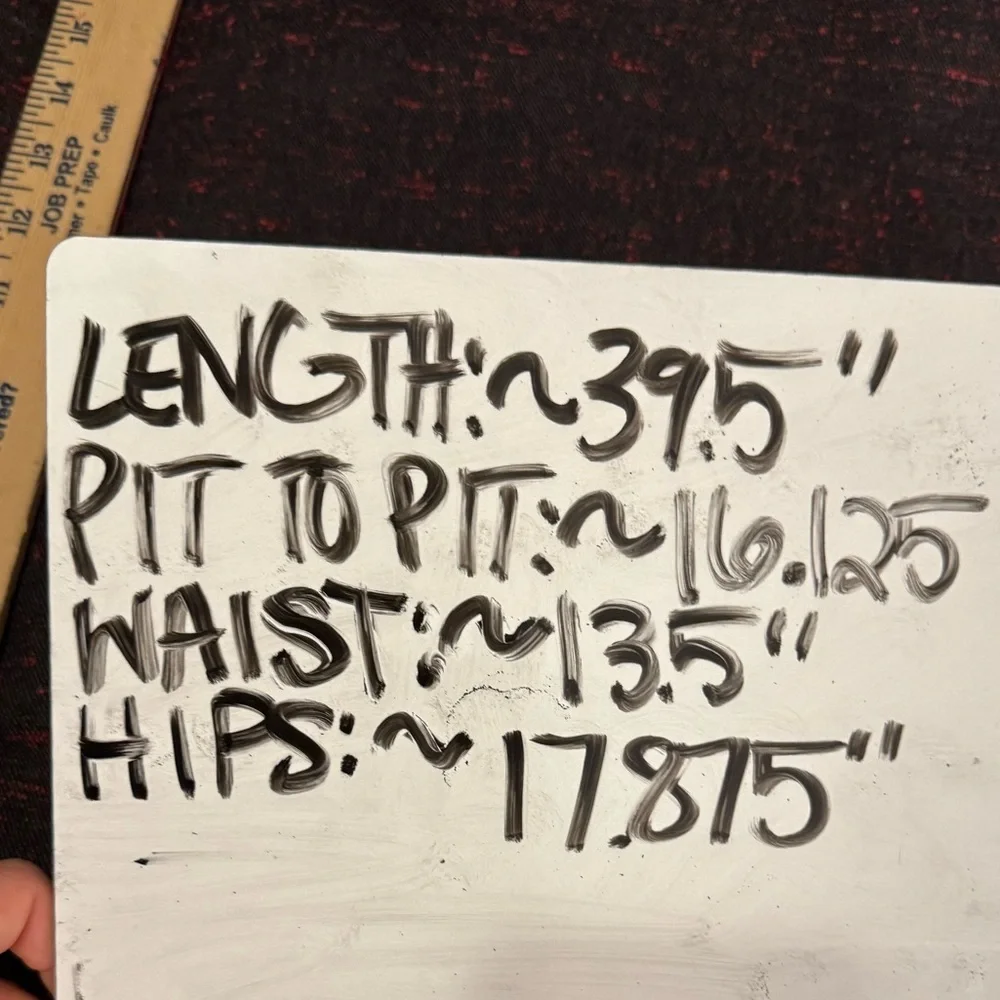 15
14
13
12
11
JOB PREP
ner • Tape • Caulk
ered?
LENGTH: ~39.5"
PIT TO PIT: ~16.125
WAIST: ~13.5"
HIPS: ~17.875"